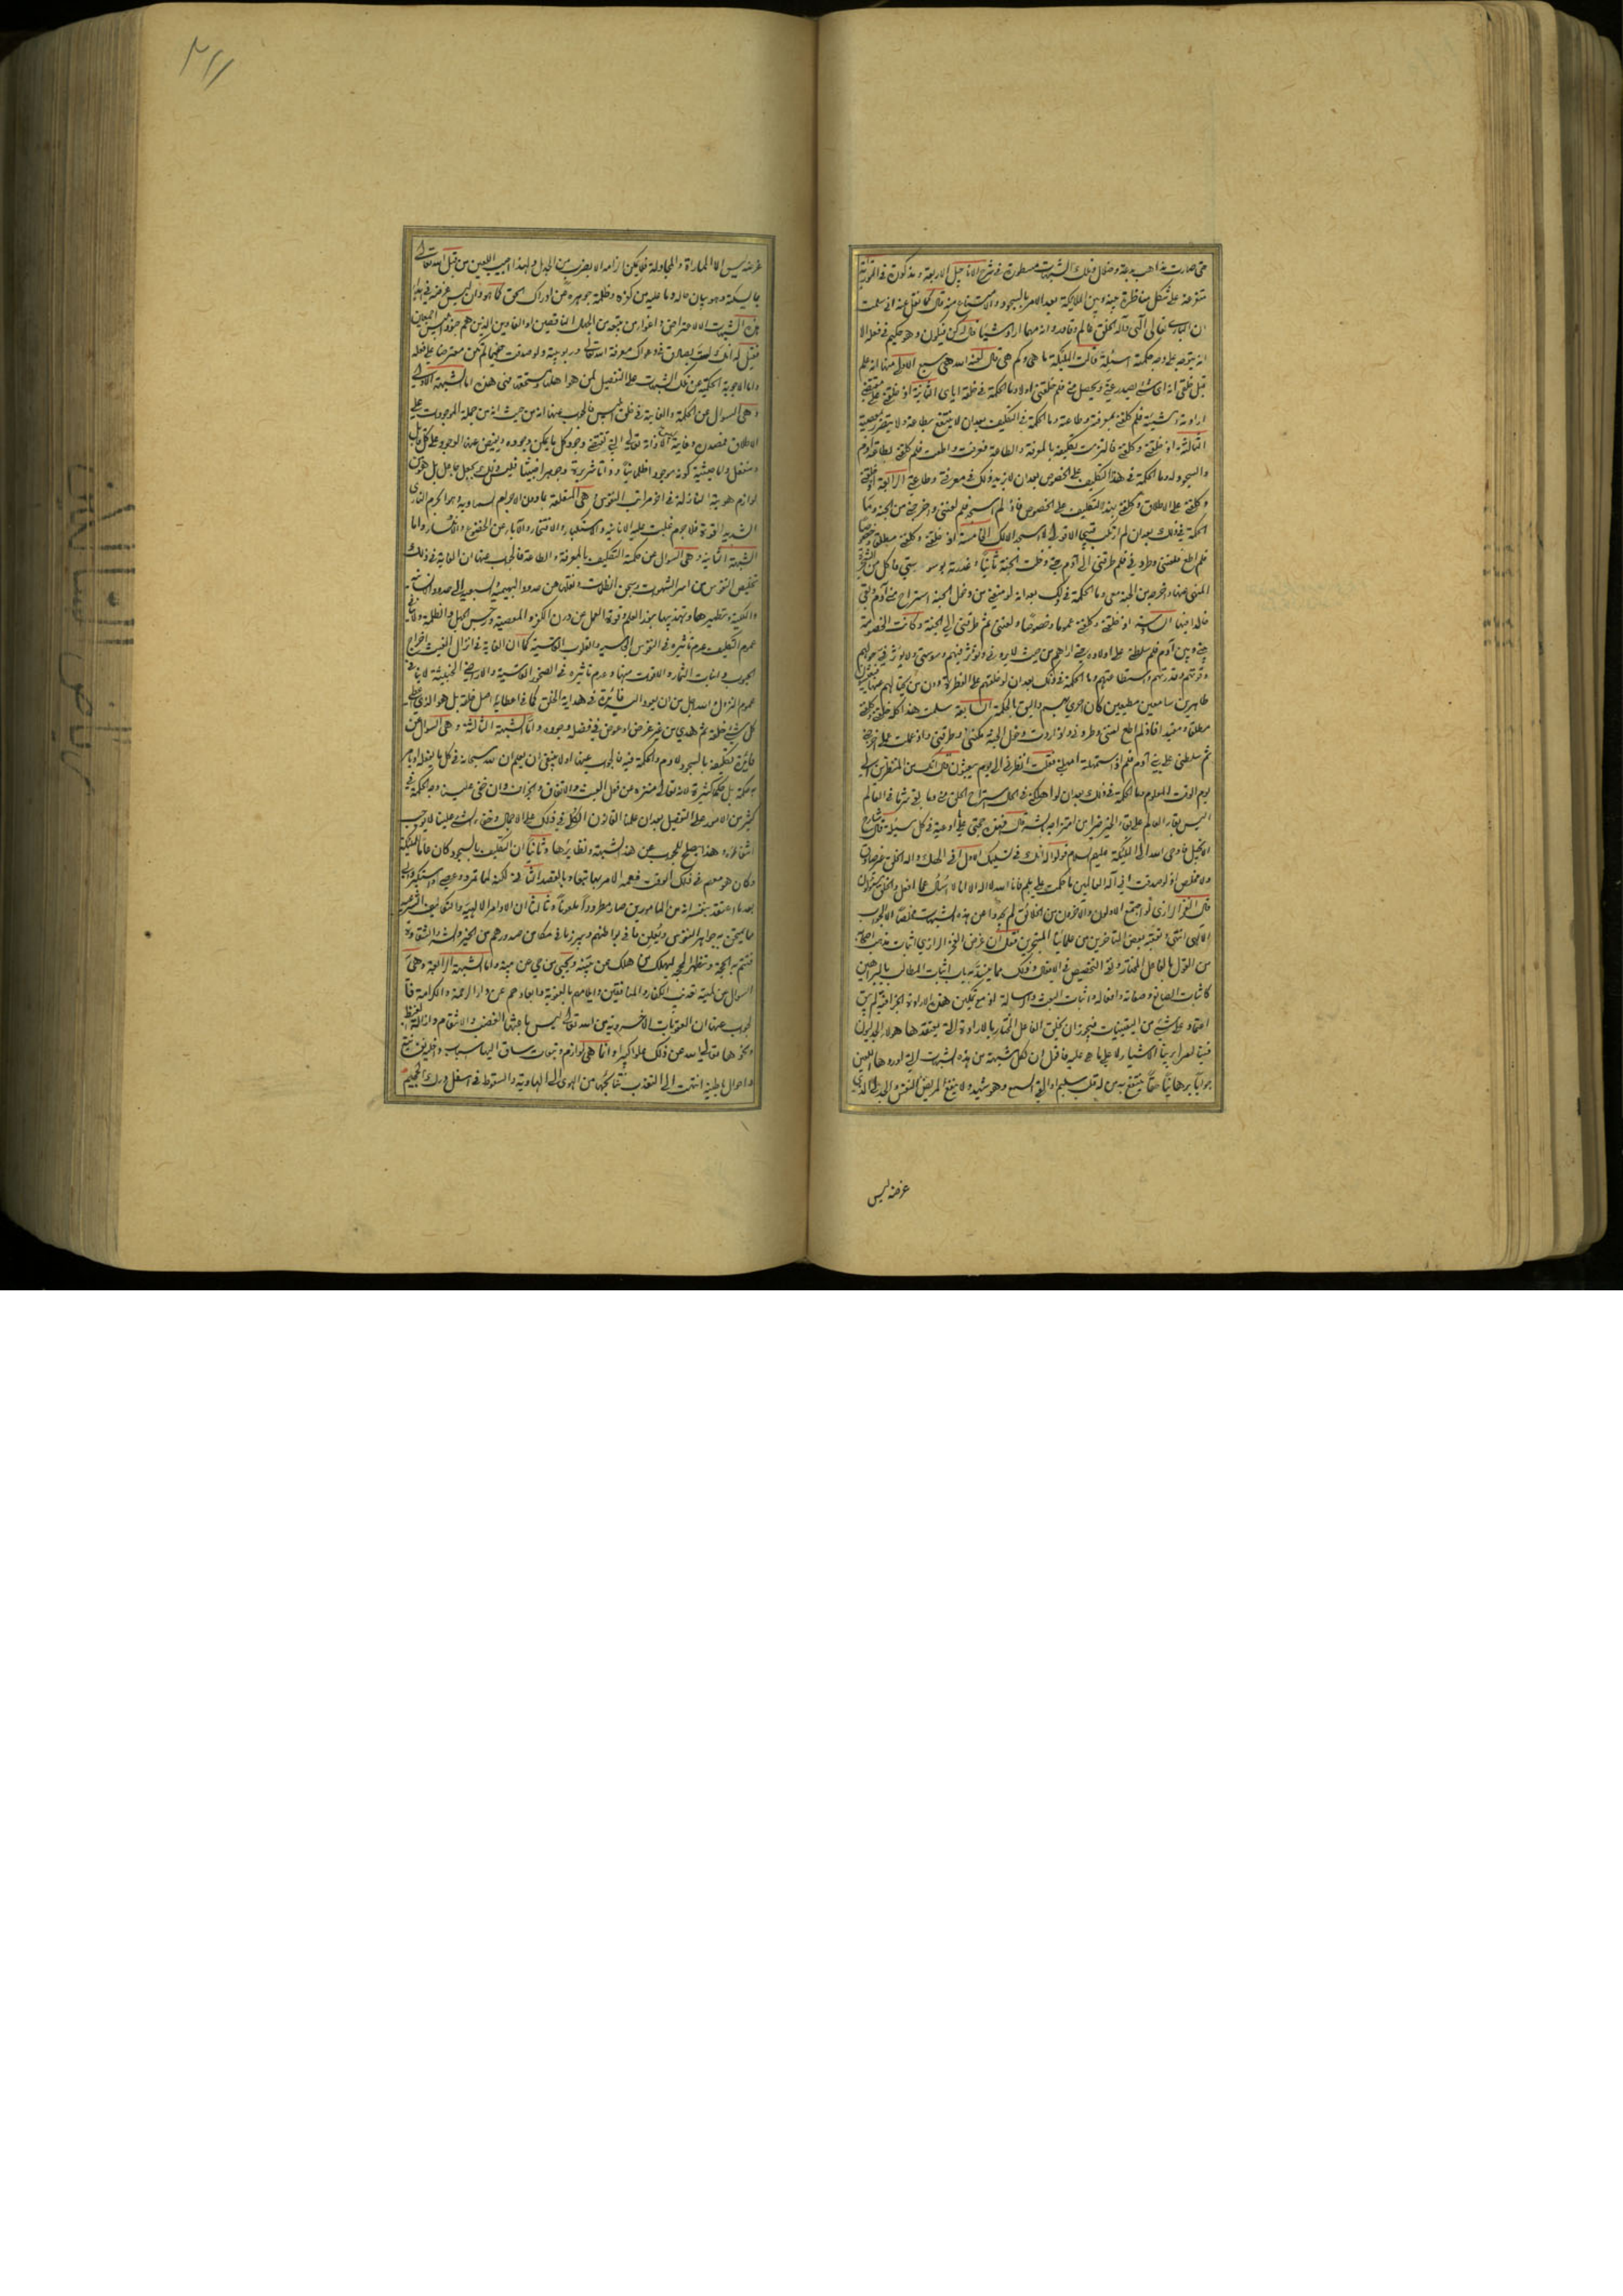 حتى صارت مذاهب بدعة وضلال وتلك الشبهات مسطورة في شرح الاناجيل الاربعة ومذكورة في التورية
متفرقة على شكل مناظرة بينه وبين الملايكة بعد الامر بالسجود والامتناع منه قال كما نقل عنه اني سلمت
ان الباري تعالى الهي واله الخلق عالم وقادر وانه مهما اراد شيئا قال له كن فيكون وهو حكيم في فعله الا
انه يتوجه على وجه حكمته اسئلة قالت الملئكة ما هي وكم هي قال لعنه الله هي سبع الاول منها انه علم
قبل خلقي انه اي شئ يصدر عني ويحصل مني فلم خلقني اولا وما الحكمة في خلقه اياي الثانية اذ خلقني على مقتضى
ارادته ومشيته فلم كلفني بمعرفته وطاعته وما الحكمة في التكليف بعد ان لا ينتفع بطاعة ولا يتضرر بمعصية
الثالثة اذ خلقني وكلفني فالتزمت تكليفه بالمعرفة والطاعة فعرفت واطعت فلم كلفني بطاعة آدم
والسجود له وما الحكمة في هذا التكليف على الخصوص بعد ان لا يزيد ذلك في معرفتي وطاعتي الرابعة اذ خلقني
وكلفني على الاطلاق وكلفني بهذا التكليف على الخصوص فاذ لم اسجد فلم لعنني واخرجني من الجنة وما
الحكمة في ذلك بعد ان لم ارتكب قبيحا الا قولي لا اسجد الا لك الخامسة اذ خلقني وكلفني مطلقا وخصوصا
فلم اطع فلعنني وطردني فلم طرقني الى آدم حتى دخلت الجنة ثانيا وغررته بوسوستي فاكل من الشجرة
المنهي عنها واخرجه من الجنة معي وما الحكمة في ذلك بعد انه لو منعني من دخول الجنة استراح مني آدم وبقي
خالدا فيها السادسة اذ خلقني وكلفني عموما وخصوصا ولعنني ثم طرقني الى الجنة وكانت الخصومة
بيني وبين آدم فلم سلطني على اولاده حتى اراهم من حيث لا يروني وتؤثر فيهم وسوستي ولا يؤثر في حولهم
وقوتهم وقدرتهم واستطاعتهم وما الحكمة في ذلك بعد ان لو خلقهم على الفطرة دون من يحتالهم عنها فيعيشوا
طاهرين سامعين مطيعين كان احرى بهم واليق بالحكمة السابعة سلمت هذا كله خلقني وكلفني
مطلقا ومقيدا فاذ لم اطع لعنني وطردني واذ اردت دخول الجنة مكنني وطرقني واذ عملت عملي اخرجني
ثم سلطني على بني آدم فلم اذ استمهلته امهلني فقلت انظرني الى يوم يبعثون قال انك من المنظرين الى
يوم الوقت المعلوم وما الحكمة في ذلك بعد ان لو اهلكني في الحال استراح الخلق مني وما بقي شر ما في العالم
اليس بقاء العالم على نظام الخير خيرا من امتزاجه بالشر قال فهذه حجتي على ما ادعيته في كل مسئلة قال شارح
الانجيل فاوحى الله الى الملئكة عليهم السلام قولوا له انك في تسليمك الاول اني الهك واله الخلق غير صادق
ولا مخلص اذ لو صدقت اني اله العالمين ما حكمت علي بلم فانا الله لا اله الا انا لا اسئل عما افعل والخلق مسئولون
قال الفخر الرازي لو اجتمع الاولون والاخرون من الخلائق لم يجدوا عن هذه الشبهات مخلصا الا الجواب
الالهي انتهى وتعقبه بعض المتاخرين من علمائنا المتبحرين فقال ان غرض الفخر الرازي اثبات مذهب اصحابه
من القول بالفاعل المختار ونفي التخصيص في الافعال وذلك مما ينسد به باب اثبات المطالب بالبراهين
كاثبات الصانع وصفاته وافعاله واثبات البعث والرسالة اذ مع تمكين هذه الارادة الجزافية لم يبق
اعتماد على شئ من اليقينيات فيجوز ان يخلق الفاعل المختار بالارادة التي يعتقدها هولاء الجدليون
فينا امرا يرينا الاشياء لا على ما هي عليه فاقول ان لكل شبهة من هذه الشبهات التي اوردها اللعين
جوابا برهانيا حقا ينتفع به من له قلب سليم او القى السمع وهو شهيد ولا ينفع المريض النفس والجدلي الذي
غرضه ليس
غرضه ليس الا المماراة والمجادلة فلا يمكن الزامه الا بضرب من الجدل ولهذا اجيب اللعين من قبل الله تعالى
بما يسكته وهو بيان حاله وما عليه من كفره وظلمة جوهره عن ادراك الحق كما هو وان ليس غرضه في ابداء
هذه الشبهات الا الاعتراض واغواء من يتبعه من الجهال الناقصين او الغاوين الذين هم جنود ابليس اجمعين
فقيل له انك لست بصادق في دعواك معرفة الله تعالى وربوبيته ولو صدقت فيهما لم تكن معترضا على فعله
واما الاجوبة الحكمية عن تلك الشبهات على التفصيل لمن هو اهلها ومستحقها فهي هذه اما الشبهة الاولى
وهي السؤال عن الحكمة والغاية في خلق ابليس فالجواب عنها انه من حيث انه من جملة الموجودات على
الاطلاق فمصدره وغايته ليس الا ذاته تعالى التي تقتضي وجود كل ما يمكن وجوده ويفيض عنها الوجود على كل قابل
ومنفعل واما حيثية كونه موجودا ظلمانيا وذا شرية وجوهرا خبيثا فليس ذلك بجعل جاعل بل هو من
لوازم هويته النازلة في اخر مراتب النفوس وهي المتعلقة بما دون الاجرام السماوية وهو الجرم الناري
الشديد القوة فلا جرم غلبت عليه الانانية والاستكبار والافتخار والاباء عن الخضوع والانكسار واما
الشبهة الثانية وهي السؤال عن حكمة التكليف بالمعرفة والطاعة فالجواب عنها ان الغاية في ذلك
تخليص النفوس من اسر الشهوات وسجن الظلمات ونقلها من حدود البهيمية والسبعية الى حدود الانسانية
والملكية وتطهيرها وتهذيبها بنور العلم وقوة العمل عن درن الكفر والمعصية ورجس الجهل والظلمة ولا ينافي
عموم التكليف عدم تاثيره في النفوس الجاسية والقلوب القاسية كما ان الغاية في انزال الغيث اخراج
الحبوب وانبات الثمار والاقوات منها وعدم تاثيره في الصخور القاسية والاراضي الخبيثة لا ينافي
عموم النزول والله اجل من ان يعود اليه فائدة في هداية الخلق كما في اعطائه اصل خلقه بل هو الذي اعطى
كل شئ خلقه ثم هدى من غير غرض او عوض في فضله وجوده واما الشبهة الثالثة وهي السؤال عن
فائدة تكليفه بالسجود لآدم والحكمة فيه فالجواب عنها اولا ينبغي ان يعلم ان لله سبحانه في كل ما يفعله او يامر
به حكمة بل حكما كثيرة لانه تعالى منزه عن فعل العبث والاتفاق والجزاف وان خفي علينا وجه الحكمة في
كثير من الامور على التفصيل بعد ان علمنا القانون الكلي في ذلك على الاجمال وخفاء الشئ علينا لا يوجب
انتفائه وهذا يصلح للجواب عن هذه الشبهة ونظائرها وثانيا ان التكليف بالسجود كان عاما للملئكة
وكان هو معهم في ذلك الوقت فعمه الامر بها تبعا وبالقصد الثاني لكنه لما تمرد وعصى واستكبر وابى
بعد ما اعتقد بنفسه انه من المامورين صار مطرودا ملعونا وثالثا ان الاوامر الالهية والتكاليف الشرعية
مما يمتحن به جواهر النفوس ويعلن ما في بواطنهم ويبرز ما في مكامن صدورهم من الخير والشر والشقاوة
فتتم به الحجة وتظهر المحجة ليهلك من هلك عن بينة ويحيى من حي عن بينة واما الشبهة الرابعة وهي
السؤال عن لمية تعذيب الكفار والمنافقين وايلامهم بالعقوبة وابعادهم عن دار الرحمة والكرامة فا
لجواب عنها ان العقوبات الاخروية من الله تعالى ليس باعثها الغضب والانتقام وازالة الغيظ
ونحوها تعالى الله عن ذلك علوا كبيرا وانما هي لوازم وتبعات ساق اليها اسباب داخلية نفسانية
واحوال باطنية انتهت الى التعذيب بنتائجها من الهوى الى الهاوية والسقوط في اسفل درك الجحيم